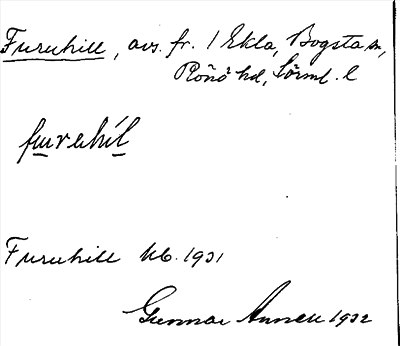 Furuhill, avs. fr. 1 Ekla, Bogsta sn,
Rönö hd, Sörml. l
furuhil
Furuhill kb. 1931
Gunnar 1932